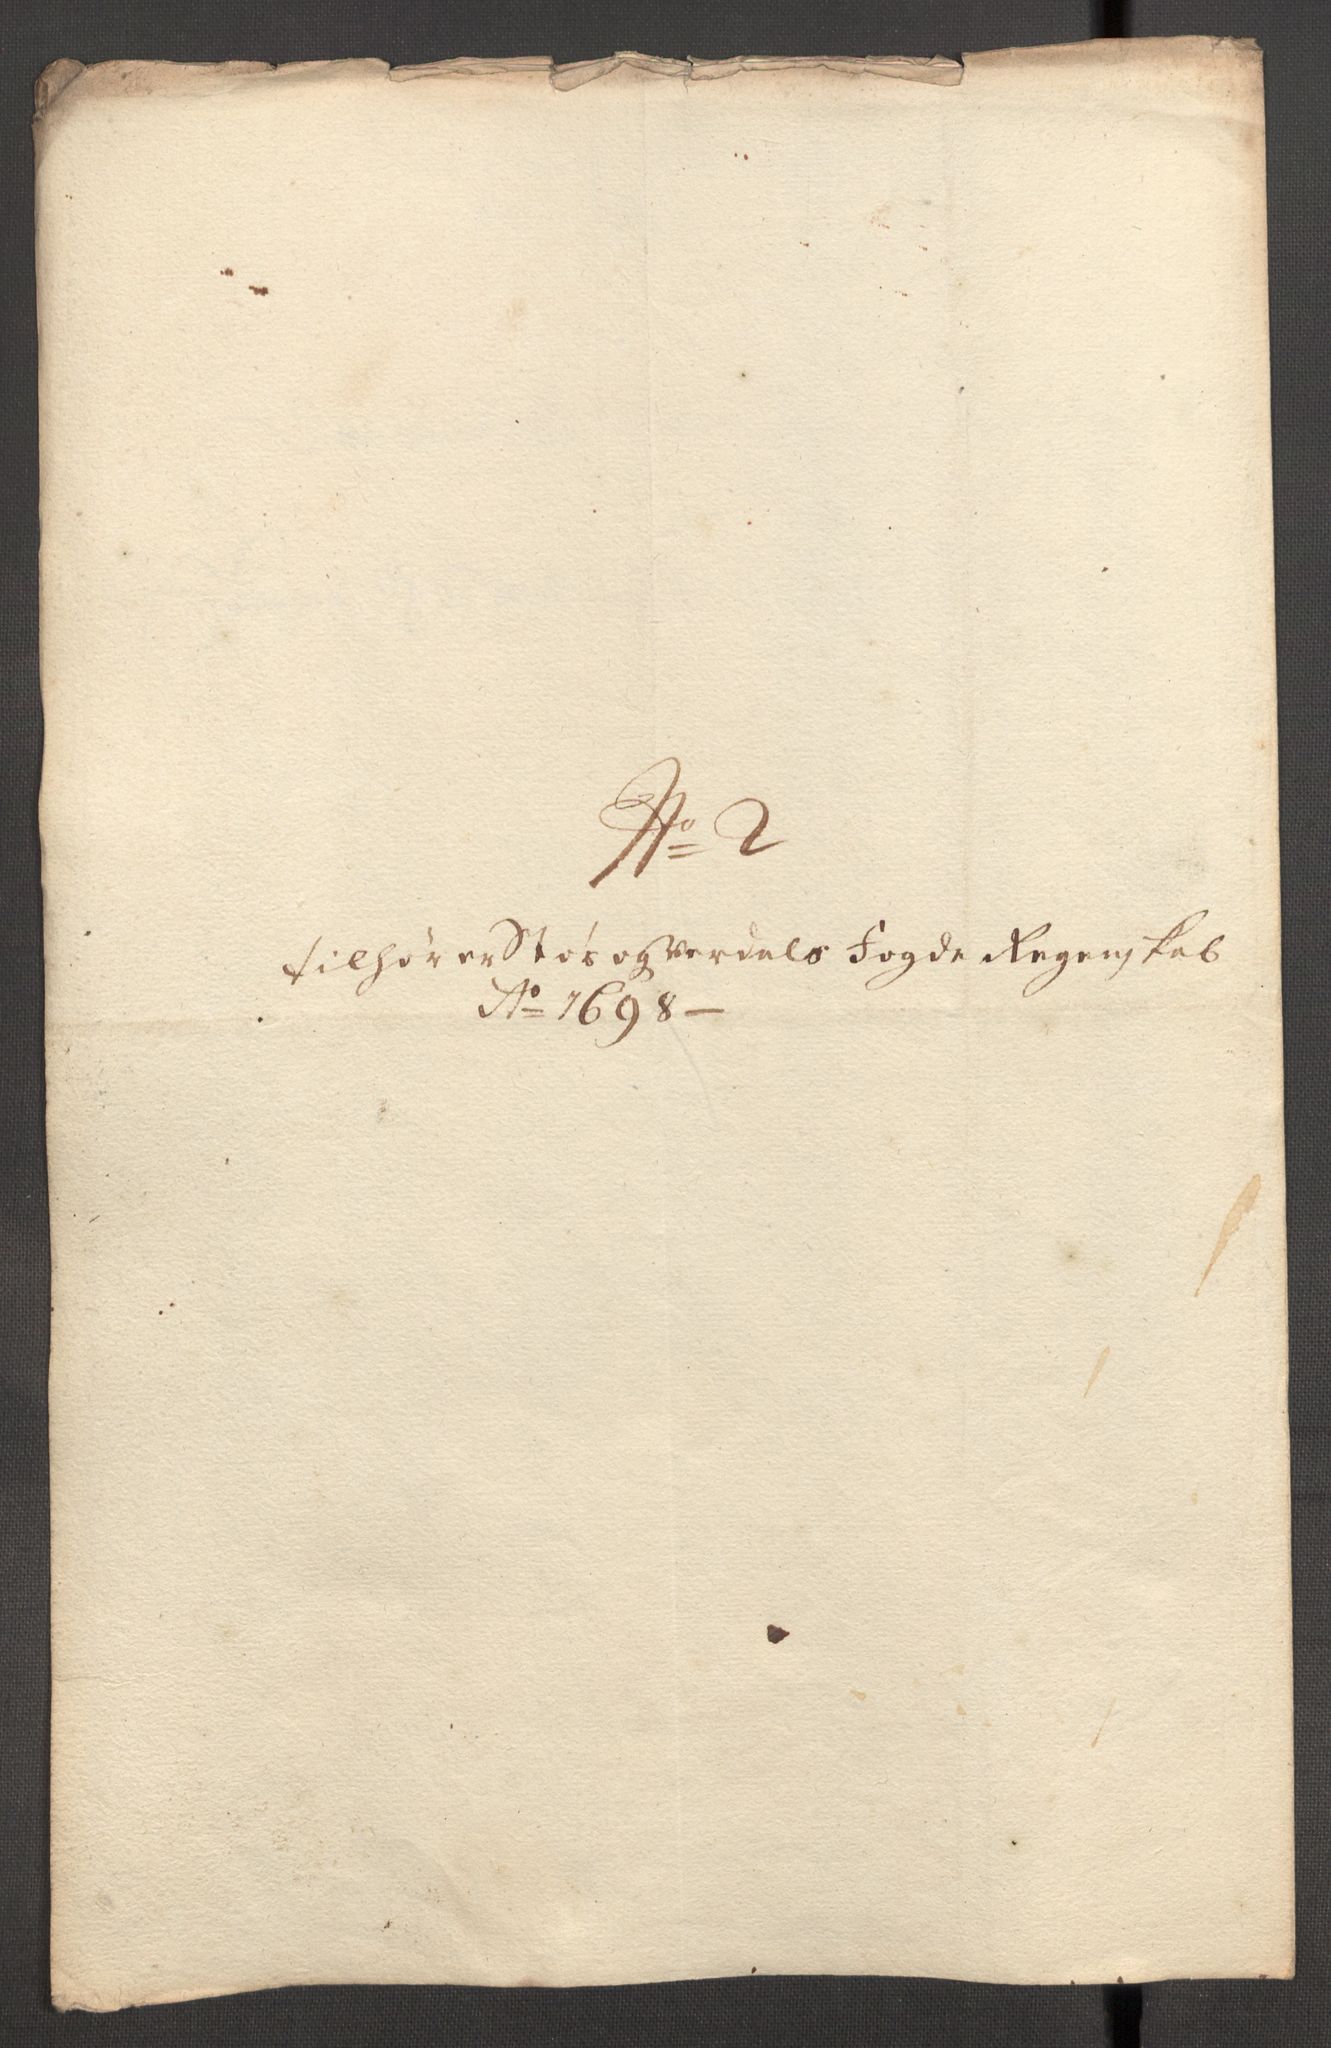 No 2
tilhører Stør og Verdals Fogde Regenskab
Ao 1698 —